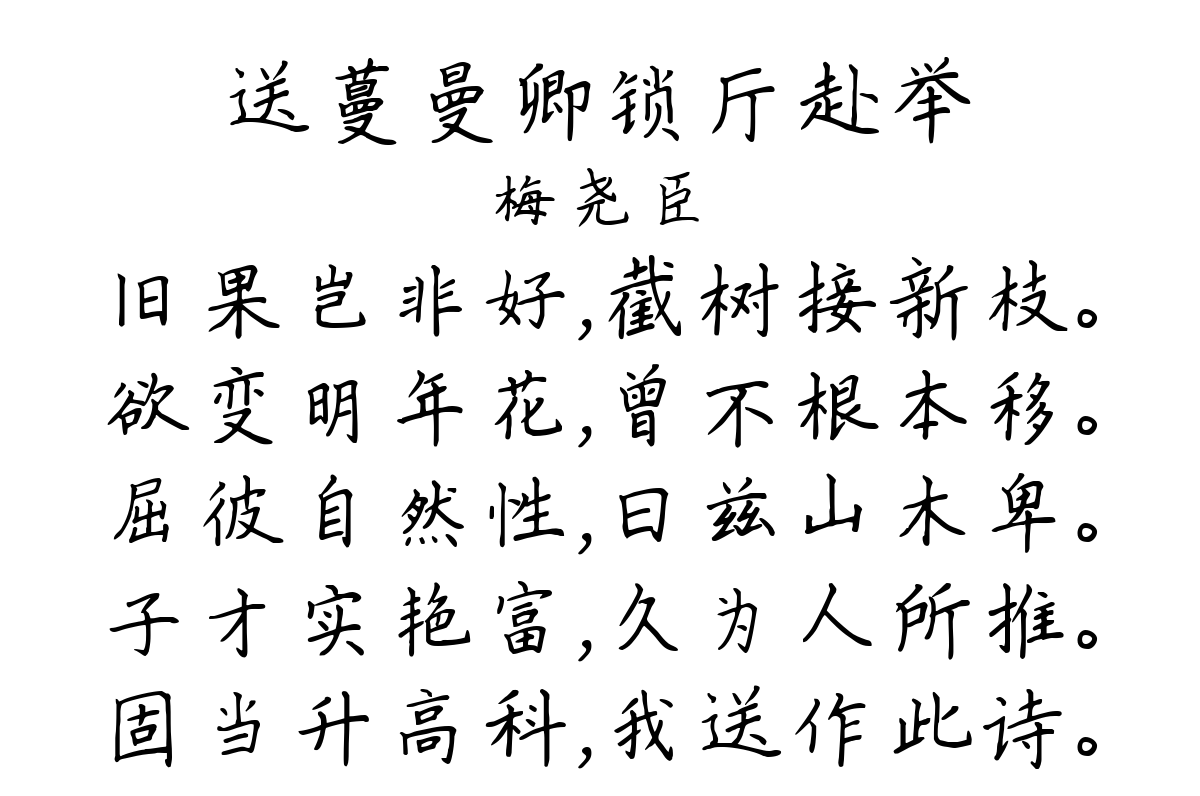 送蔓曼卿锁厅赴举
梅尧臣
旧果岂非好,截树接新枝。
欲变明年花,曾不根本移。
屈彼自然性,曰兹山木卑。
子才实艳富,久为人所推。
固当升高科,我送作此诗。